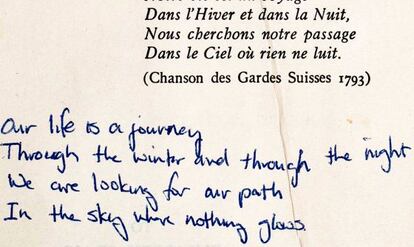 Notre vie est un voyage
Dans l'Hiver et dans la Nuit,
Nous cherchons notre passage
Dans le Ciel où rien ne luit.
(Chanson des Gardes Suisses 1793)
Our life is a journey
Through the winter and through the night
We are looking for our path
In the sky where nothing glows.